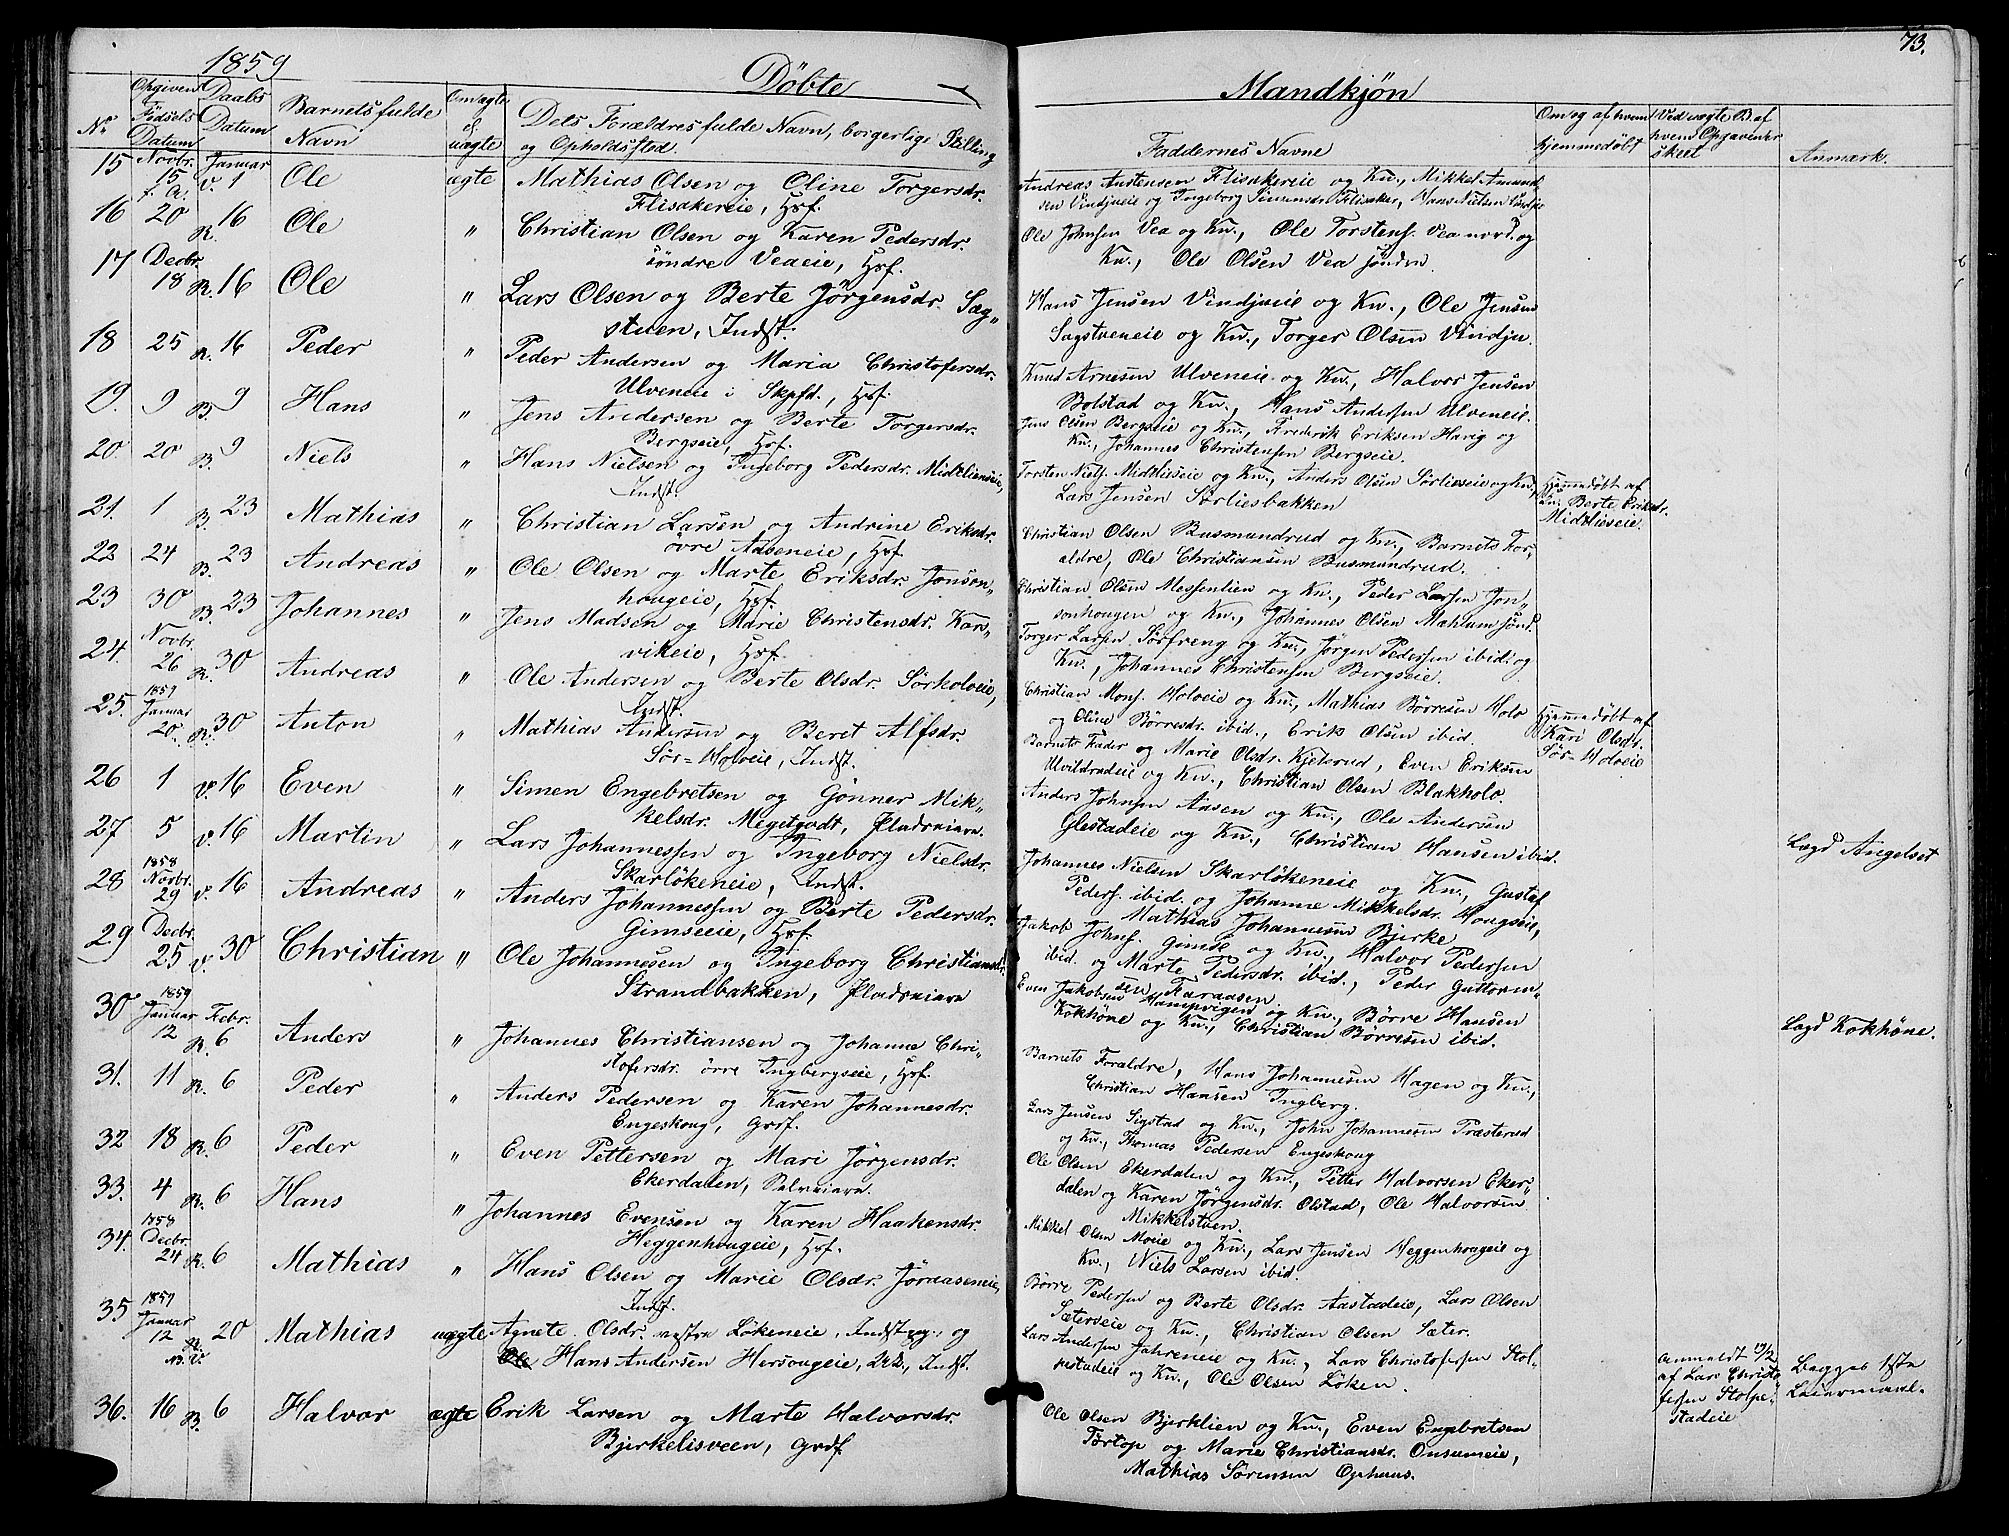 1859
Döbte
Mandkjön
73.
No
Opgiven Födsels Datum
Daabs Datum
Barnets fulde Navn
Om ægte el. uægte
Dets Forældres fulde Navn, borgerlige Stilling og Opholdssted.
Faddernes Navne
Om og af hvem hjemmedöbt
Ved uægte B. af hvem Opgaven er skeet
Anmærk.
15 Novbr. 15 f. A. Januar V. 1 Ole ægte Mathias Olsen og Oline Torgersdr.
Flisakereie, Hsf.
Andreas Austensen Flisakereie og Kn., Mikkel Amund-
sen Vindjueie og Ingeborg Simensdr. Flisaker, Hans Nielsen
16 20 R. 16 Ole " Christian Olsen og Karen Pedersdr.
söndre Veaeie, Hsf.
Ole Johnsen Vea og Kn., Ole Torstens. Vea nord. og
Kn., Ole Olsen Vea söndre.
17 Decbr. 18 R. 16 Ole " Lars Olsen og Berte Jörgensdr. Sag-
stuen, Indst.
Hans Jensen Vindjueie og Kn., Ole Jensen
Sagstueneie og Kn., Torger Olsen Vindju.
18 25 R. 16 Peder " Peder Andersen og Maria Christofersdr.
Ulveneie i Skpfd., Hsf.
Knud Arnesen Ulveneie og Kn., Halvor Jensen
Bolstad og Kn., Hans Andersen Ulveneie.
19. 9 B. 9 Hans " Jens Andersen og Berte Torgersdr.
Bergseie, Hsf.
Jens Olsen Bergseie og Kn., Frederik Eriksen Havig og
Kn., Johannes Christensen Bergseie.
20. 20 B. 9 Niels " Hans Nielsen og Ingeborg Pedersdr. Midtlienseie,
Indst.
Torsten Niels. Midtlieseie og Kn., Anders Olsen Sörlieseie og Kn.,
Lars Jensen Sörliesbakken
Hjemmedöbt af
Berte Eriksdr.
Midtlieseie.
21. 1 B. 23 Mathias " Christian Larsen og Andrine Eriksdr.
övre Aaseneie, Hsf.
Christian Olsen Busmundrud og Kn., Barnets For-
ældre, Ole Christiansen Busmundrud.
22 24 B. 23 Andreas " Ole Olsen og Marte Eriksdr. Jonson-
hougeie, Hsf.
Christian Olsen Messenlien og Kn., Peder Larsen Jon-
sonhougen og Kn., Johannes Olsen Mælum sönd.
23 30 B. 23 Johannes " Jens Madsen og Marie Christensdr. Kors-
vikeie, Hsf.
Torger Larsen Sörfreng og Kn., Jörgen Pedersen ibid. og
Kn., Johannes Christensen Bergseie.
24. Novbr. 26 R. 30 Andreas " Ole Andersen og Berte Olsdr. Sörholoeie,
Indst.
Christian Mons. Holoeie og Kn., Mathias Börresen Holo
og Oline Börresdr. ibid., Erik Olsen ibid.
25. 1859 Januar 20. R. 30 Anton " Mathias Andersen og Beret Alfsdr.
Sör-Holoeie, Indst.
Barnets Fader og Marie Olsdr. Kjelsrud, Even Eriksen
Ulvildrudeie og Kn., Christian Olsen Blakholo.
Hjemmedöbt af
Kari Olsdr.
Sör-Holoeie
26 1 V. 16 Even " Simen Engebretsen og Gönner Mik-
kelsdr. Megetgodt, Pladseiere.
Anders Johnsen Aasen og Kn., Ole Andersen
Glestadeie og Kn., Christian Hansen ibid.
27 5 V. 16 Martin " Lars Johannessen og Ingeborg Nielsdr.
Skarlökeneie, Indst.
Johannes Nielsen Skarlökeneie og Kn., Gustaf
Peders. ibid. og Johanne Mikkelsdr. Hougseie,
Mathias Johannesen Bjerke
Lagd Angelset
28 1858 Novbr. 29 V. 16 Andreas " Anders Johannessen og Berte Pedersdr.
Gimseeie, Hsf.
Jakob Johns. Gimse og Kn., Halvor Pedersen
ibid. og Marte Pedersdr. ibid., Peder Guttorm-
sen Faraasen.
29 Decbr. 25 V. 30 Christian " Ole Johannesen og Ingeborg Christiansdr.
Strandbakken, Pladseiere
Even Jakobsen Hampvigen og Kn., Börre Hansen
Kokhöne og Kn., Christian Börresen ibid.
Lagd Kokhöne.
30 1859 Januar 12 Febr. R. 6 Anders " Johannes Christiansen og Johanne Chri-
stofersdr. övre Ingbergseie, Hsf.
Barnets Forældre, Hans Johannesen Hagen og Kn.,
Christian Hansen Ingberg.
31. 11 R. 6 Peder " Anders Pedersen og Karen Johannesdr.
Engeskoug, Grdf.
Lars Jensen Sigstad og Kn., John Johannesen Præsterud
og Kn., Thomas Pedersen Engeskoug
32 18 R. 6 Peder " Even Pettersen og Mari Jörgensdr.
Ekerdalen, Selveiere.
Ole Olsen Ekerdalen og Kn., Petter Halvorsen Eker-
dalen og Karen Jörgensdr. Olstad, Ole Halvorsen
Mikkelstuen.
33. 4 R. 6 Hans " Johannes Evensen og Karen Haakensdr.
Heggenhougeie, Hsf.
Mikkel Olsen Moeie og Kn., Lars Jensen Heggenhougeie og
Kn., Niels Larsen ibid.
34. 1858 Decbr. 24 R. 6 Mathias " Hans Olsen og Marie Olsdr. Jöraaseneie,
Indst.
Börre Pedersen og Berte Olsdr. Aastadeie, Lars Olsen
Sæterseie og Kn., Christian Olsen Sæter.
35 1859 Januar 12 R. 20 Mathias uægte Agnete Olsdr. vestre Lökeneie, Indst. pg., og
Ole Hans Andersen Hersougeie, Indst.
Lars Andersen Jahreneie og Kn., Lars Christofersen Stol-
pestadeie og Kn., Ole Olsen Löken.
Anmeldt 19/2
af Lars Christo-
fersen Stolpe-
stadeie
Begges 1ste
Leiermaal.
36. 16 B. 6 Halvor ægte Erik Larsen og Marte Halvorsdr.
Bjerkelisveen, Grdf
Ole Olsen Bjerklien og Kn., Even Engebretsen
Törtop og Marie Christiansdr. Onsumeie,
Mathias Sörensen Ophuus.